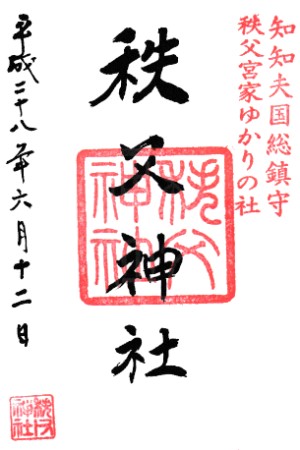 知知夫国総鎮守
秩父宮家ゆかりの社
秩父神社
秩父
神社
平成二十八年六月十二日
秩父
神社